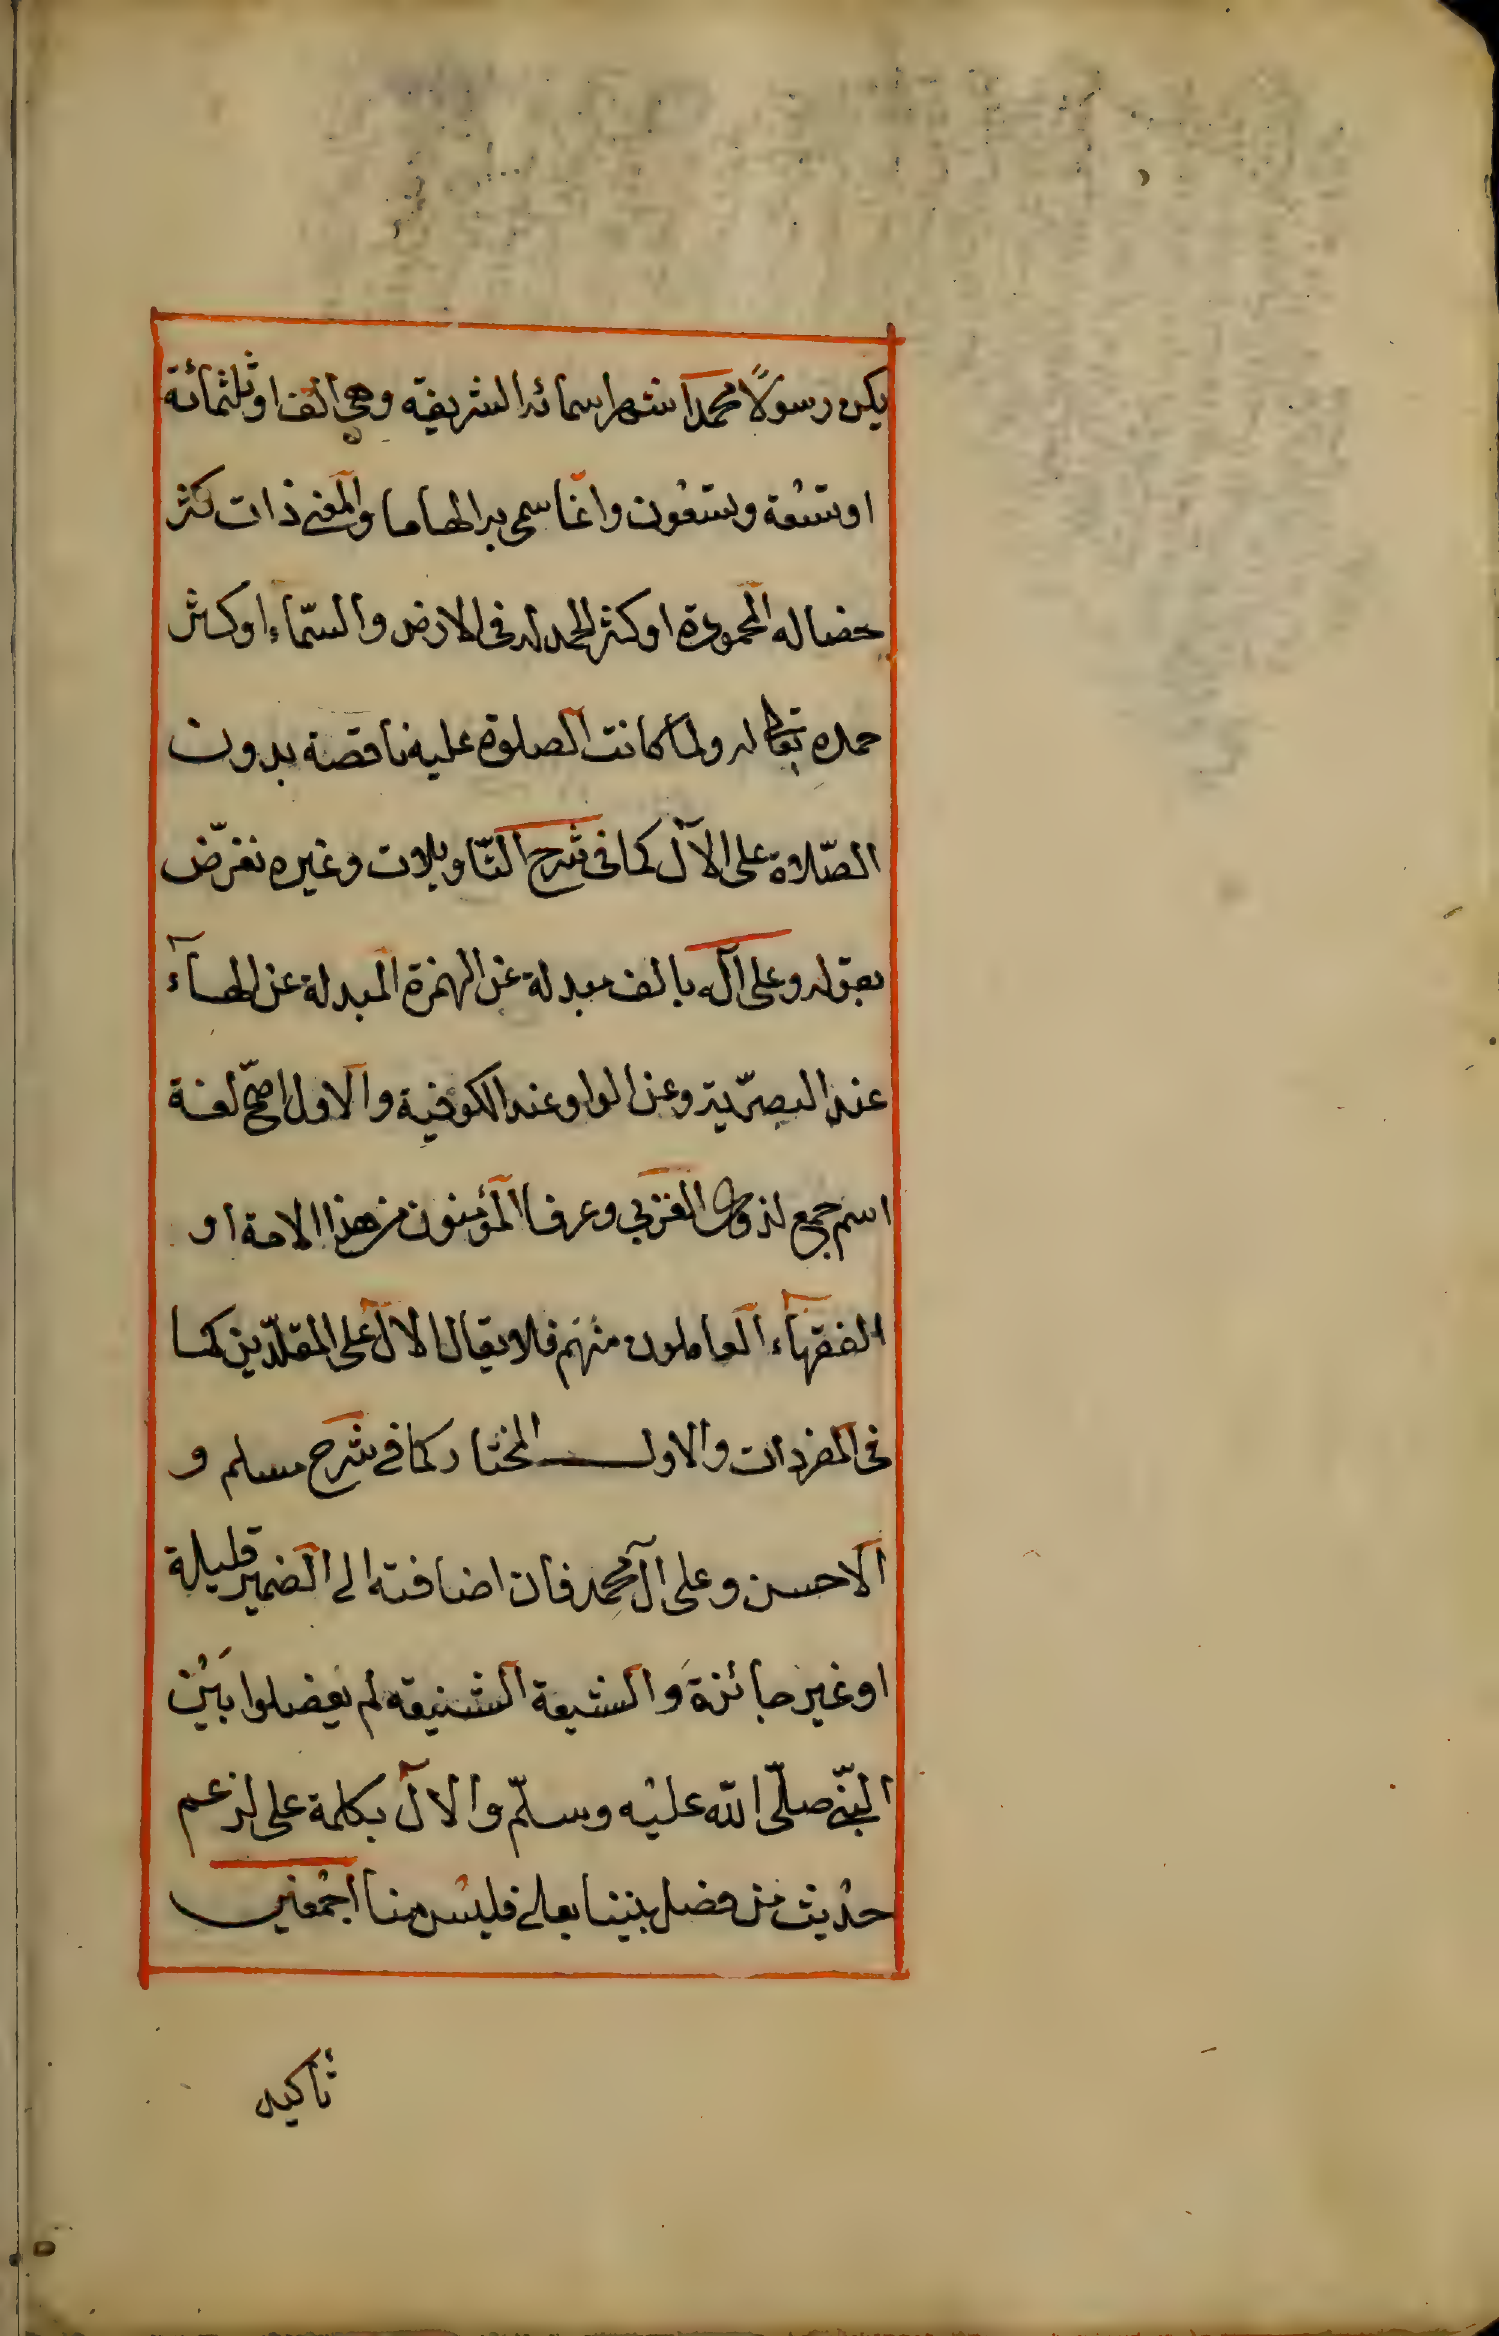 يكن رسولًا محمد اشهر اسمائه الشريفة وهي الف او ثلثمائة
او تسْعة وتسعُون وانما سمى به الهاما والمعنى ذات كثر
خصاله المحمودة او كثر الحمد له فى الارض والسّماء او كثر
حمده تعالى له ولما كانت الصلوة عليه ناقصة بدون
الصّلاوة على الآل كما فى شرح التّاويلات وغيره تعرّض
بقوله وعلى آله بالف مبدلة عن الهمزة المبدلة عن الهآء
عند البصرّية وعن الواو عند الكوفية والاول اصحّ لغة
اسم جمع لذوى القربى وعرفا المؤمنون من هذا الامة او
الفقهآء العاملون منهم فلا يقال الآل على المقلدّين كما
فى المفردات والاول المختار كما فى شرح مسلم و
الاحسن وعلى آل محمد فان اضافته الى الضمير قليلة
او غير جائزة والشيعة الشنيعة لم يفصلوا بَيْن
النبّى صلّى اللّه عليْه وسلّم والآل بكلمة على لزعم
حدْيث من فصل بيننا بعلى فليْس منا اجْمعين
تأكيد